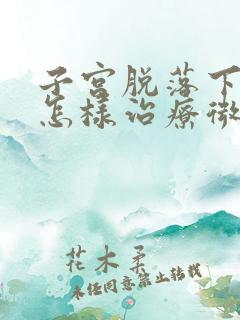 子宫脱落下
怎樣治療微
花木柔
未经同意禁止转载